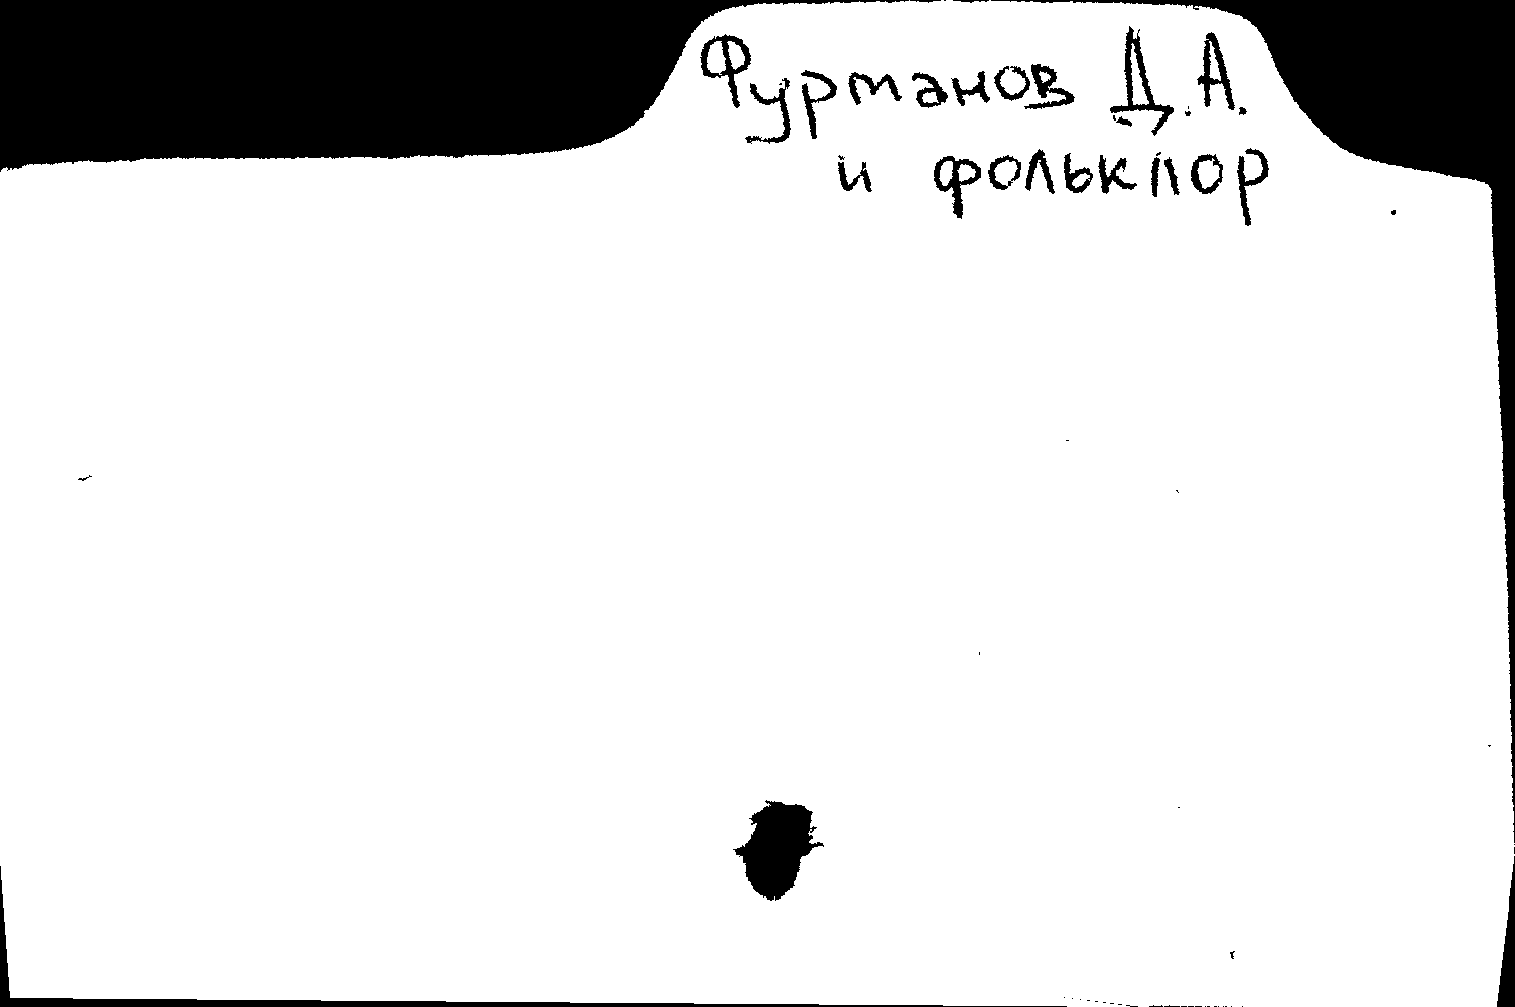 Фурманов Д.А.
и фольклор